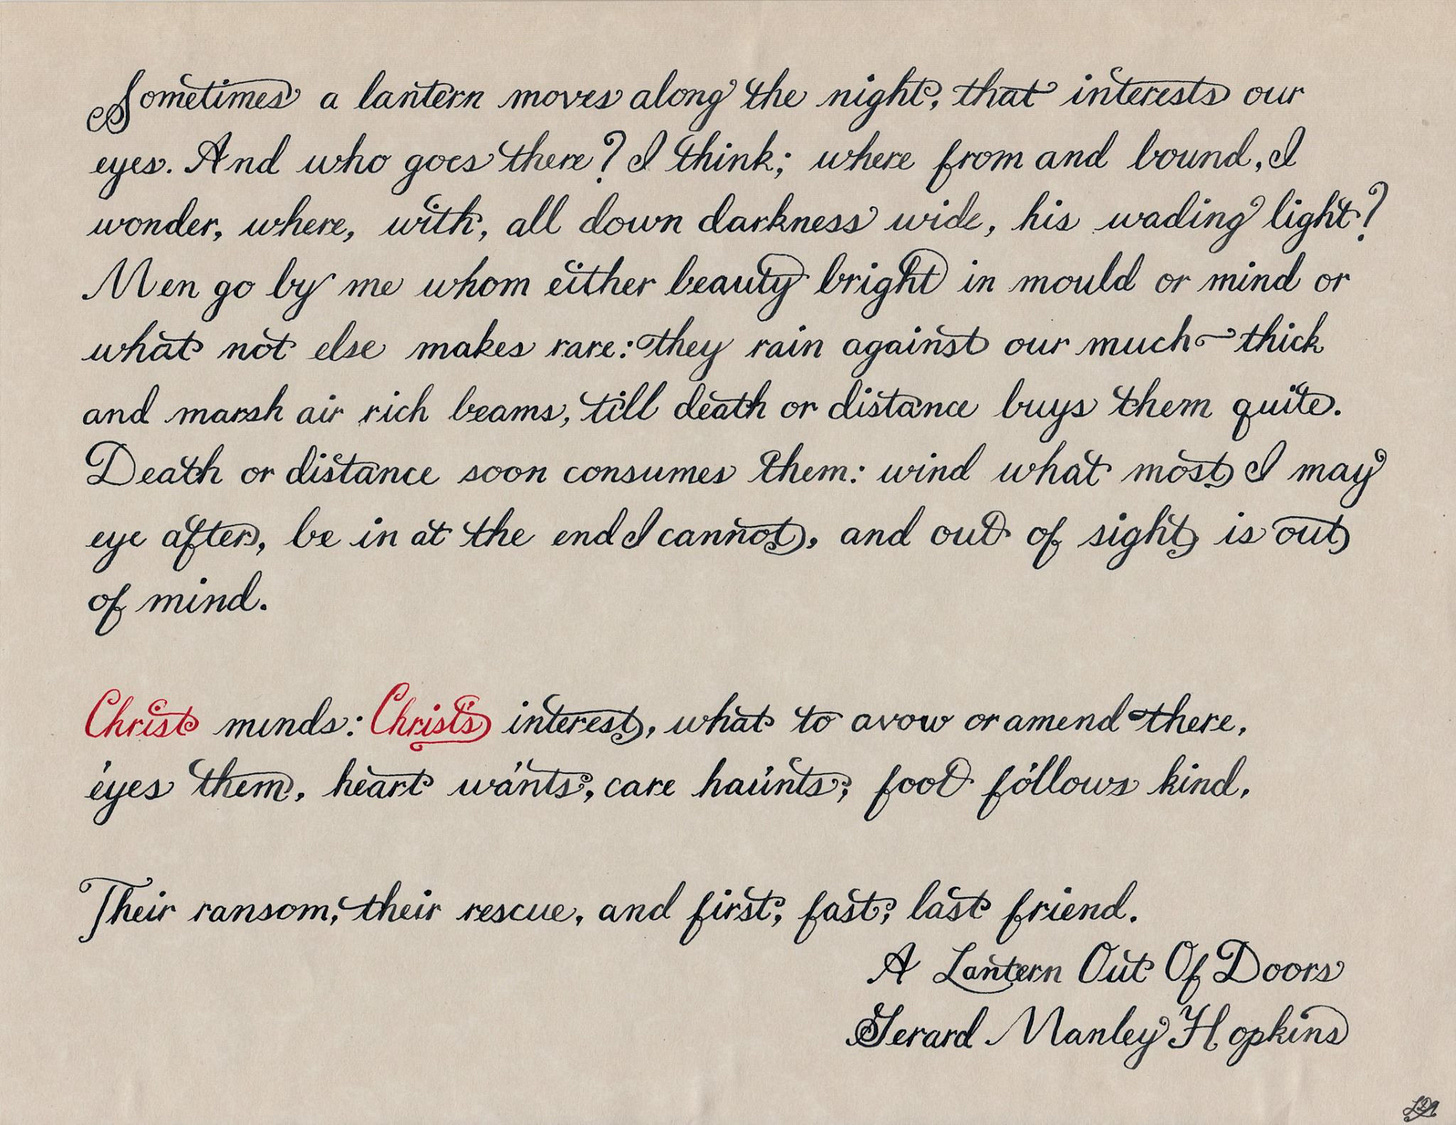 Sometimes a lantern moves along the night, that interests our
eyes. And who goes there? I think; where from and bound, I
wonder, where, with, all down darkness wide, his wading light?
Men go by me whom either beauty bright in mould or mind or
what not else makes rare: they rain against our much-thick
and marsh air rich beams, till death or distance buys them quite.
Death or distance soon consumes them: wind what most I may
eye after, be in at the end I cannot, and out of sight is out
of mind.
Christ minds: Christ's interest, what to avow or amend there,
éyes them, heart wánts, care haúnts; foot fóllows kind,
Their ransom, their rescue, and first, fast, last friend.
A Lantern Out Of Doors
Gerard Manley Hopkins